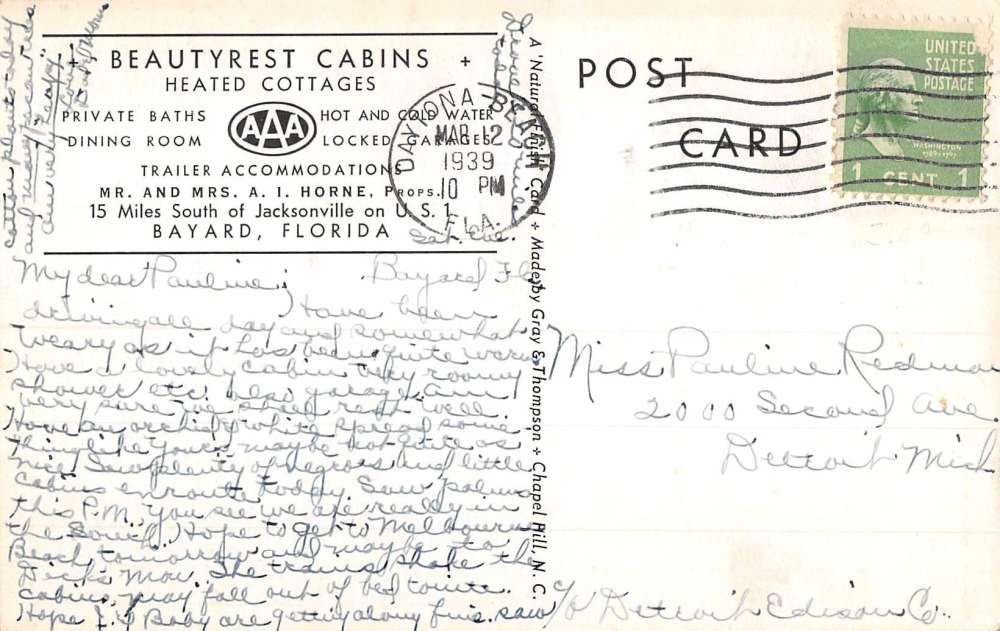 BEAUTYREST CABINS
HEATED COTTAGES
PRIVATE BATHS
DINING ROOM
AAA
HOT AND COLD WATER
LOCKED GARAGES
TRAILER ACCOMMODATIONS
MR. AND MRS. A. I. HORNE, PROPS.
15 Miles South of Jacksonville on U. S. 1
BAYARD, FLORIDA
Sat. Eve.
My dear Pauline; Bayard Fla
Have been
driving all day and somewhat
weary as it has been quite warm
Have a lovely cabin very roomy
shower etc. also garage. Am
very sure we shall rest well.
Have an orchid & white spread some
thing like yours maybe not quite as
nice. Saw plenty of negroes and little
cabins enroute today. Saw palms
this P.M. You see we are really in
the South. Hope to get to Melbourne
Beach tomorrow and maybe to
Dick's Mon. The trains shake the
cabins, may fall out of bed tonite.
Hope J. & Baby are getting along fine. saw
cotton plants today
and mossy
Love
A 'Natural-Finish' Card + Made by Gray & Thompson + Chapel Hill, N. C.
POST
CARD
DAYTONA BEACH
MAR 12
1939
10 PM
FLA.
UNITED
STATES
POSTAGE
WASHINGTON
1789-1797
1 CENT 1
Miss Pauline Redman
2000 Second Ave.
Detroit Mich
c/o Detroit Edison Co.